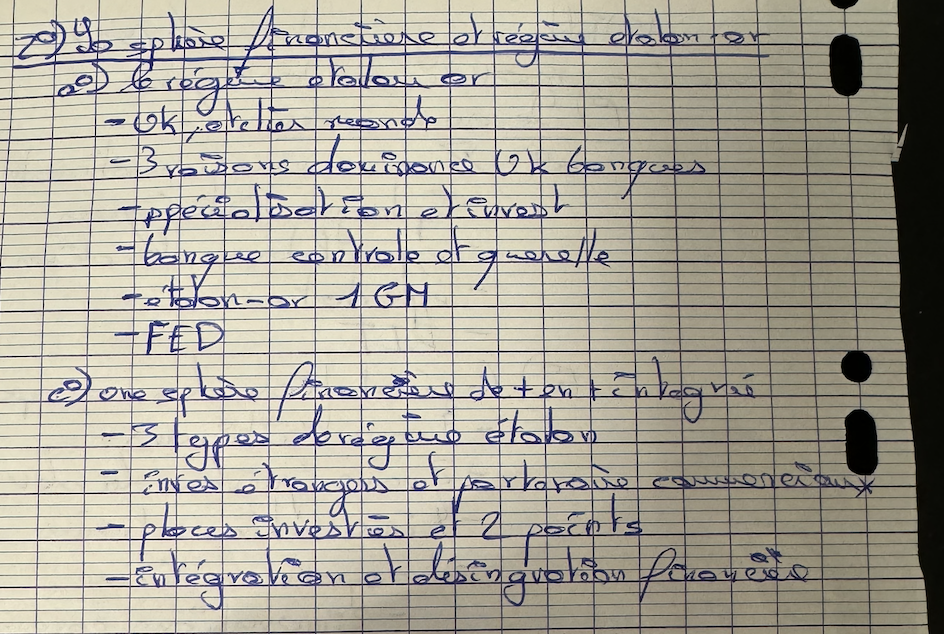 2°) La sphère financière et régime étalon-or
a) le régime étalon or
- UK, atelier monde
- 3 raisons dominance UK banques
- spécialisation et invest
- banque centrale et querelle
- étalon-or 1 GM
- FED
c) une sphère financière de + en + intégrée
- 3 types de régime étalon
- inves étrangers et partenaire commerciaux
- places investies et 2 points
- intégration et désingration financière